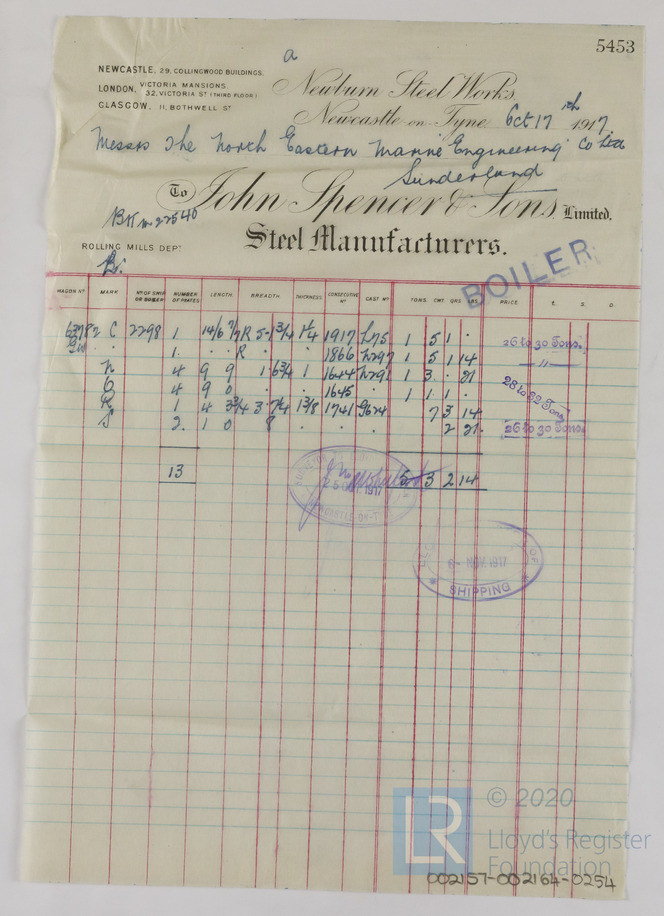 a
5453
NEWCASTLE, 29, COLLINGWOOD BUILDINGS.
LONDON, VICTORIA MANSIONS,
32, VICTORIA ST (THIRD FLOOR)
GLASGOW, 11, BOTHWELL ST
Newburn Steel Works,
Newcastle-on-Tyne, Oct 17th 1917
Messrs The North Eastern Marine Engineering Co Ltd
Sunderland
To John Spencer & Sons, Limited.
Steel Manufacturers.
ROLLING MILLS DEPT
BOILER
WAGON No MARK No OF SHIP OR BOILER NUMBER OF PLATES LENGTH BREADTH THICKNESS CONSECUTIVE No CAST No TONS CWT. QRS. LBS. PRICE £ S. D.
C 2298 1 1 1/4 1917 1 5 1 . 26 to 30 Tons.
1 . R . 1866 1 5 1 14 - 11 -
N 4 9 9 1 6 3/4 1 1644 1 3 . 21
O 4 9 0 . . 1645 . 1 1 1 . 28 to 32 Tons
R 1 4 3 3/4 3 1 3/8 1741 7 3 14
S 2 1 0 8 . . . 2 21 26 to 30 Tons.
13 5 3 2 14
25 OCT 1917
NEWCASTLE-ON-TYNE
6 - NOV. 1917
OF
SHIPPING
LR
© 2020
Lloyd's Register
Foundation
002157-002164-0254